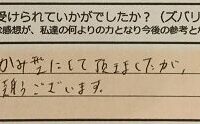 受けられていかがでしたか?（ズバリ
感想が、私達の何よりの力となり今後の参考とな
かみ型にして頂きましたが、
うございます。